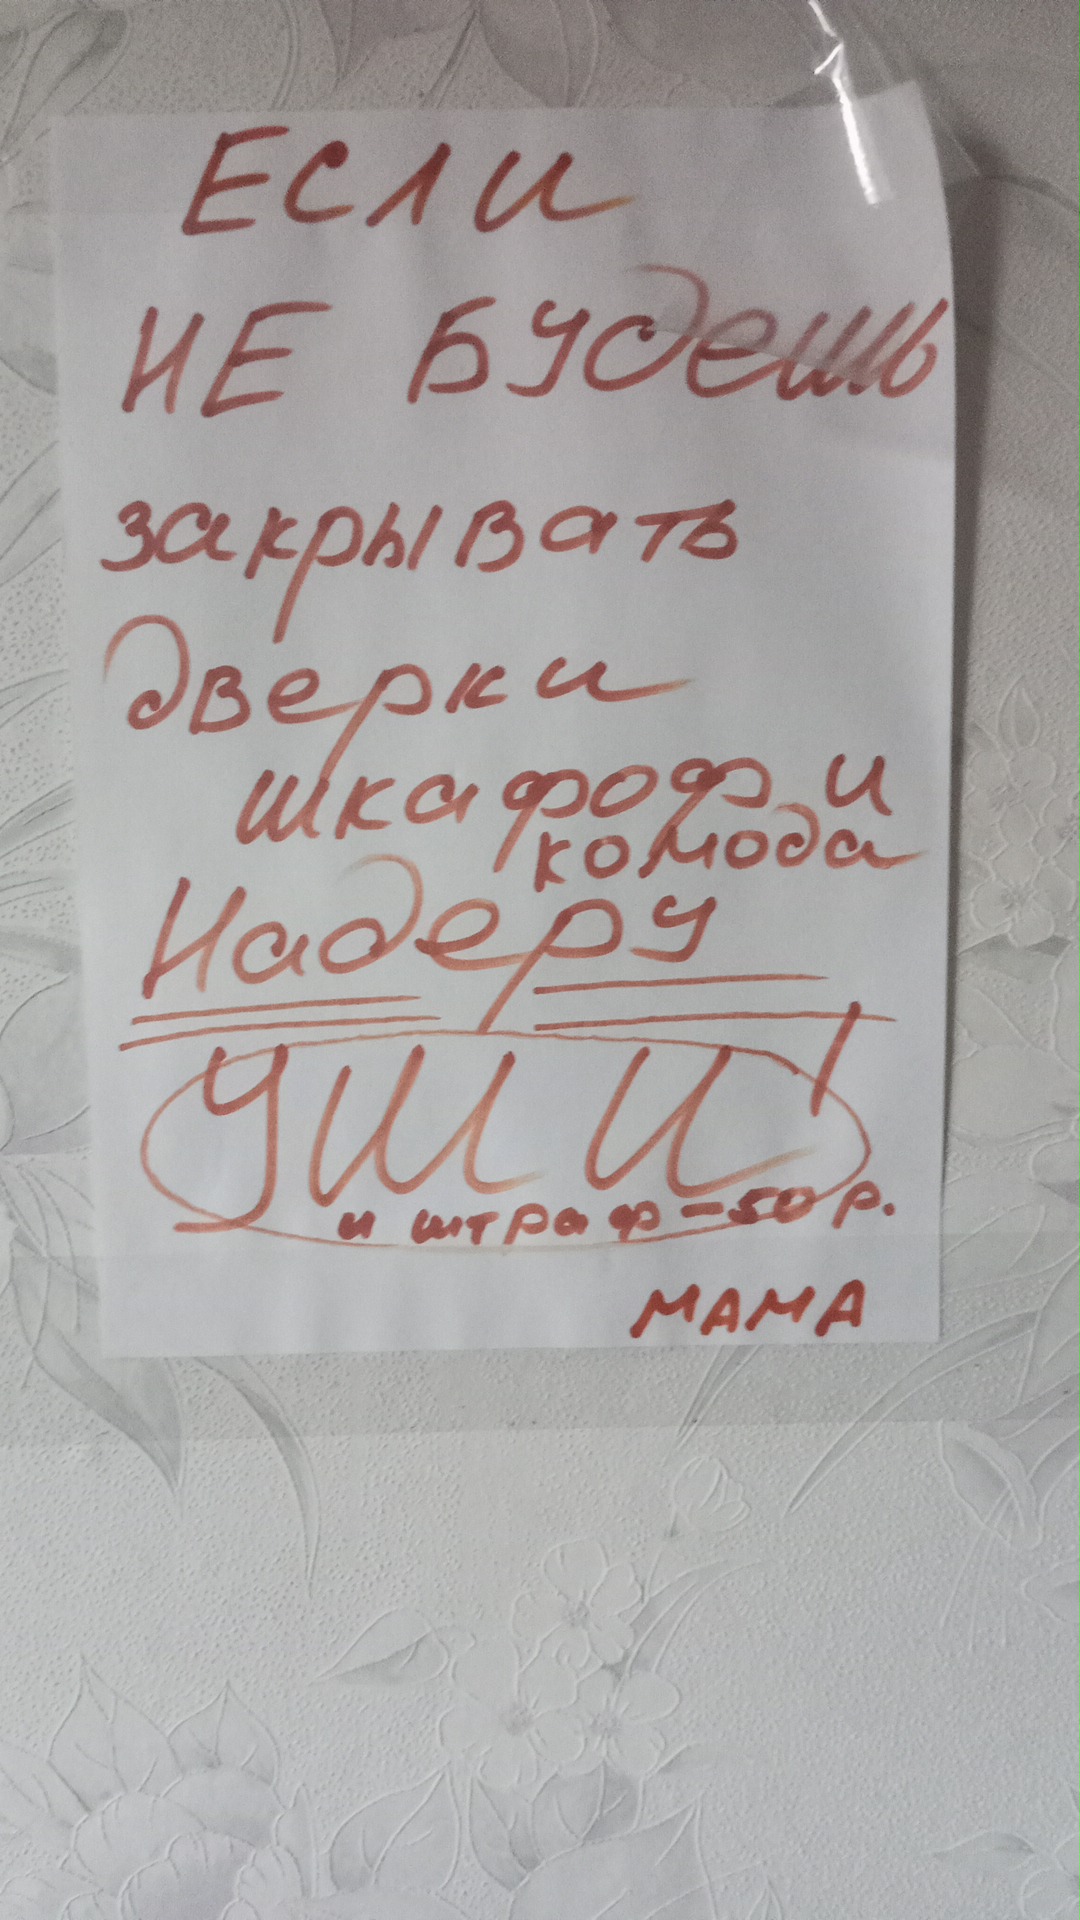 ЕСЛИ
НЕ БУдешь
закрывать
дверки
шкафоф и
комода
Надеру
УШИ!
и штраф - 50 р.
МАМА